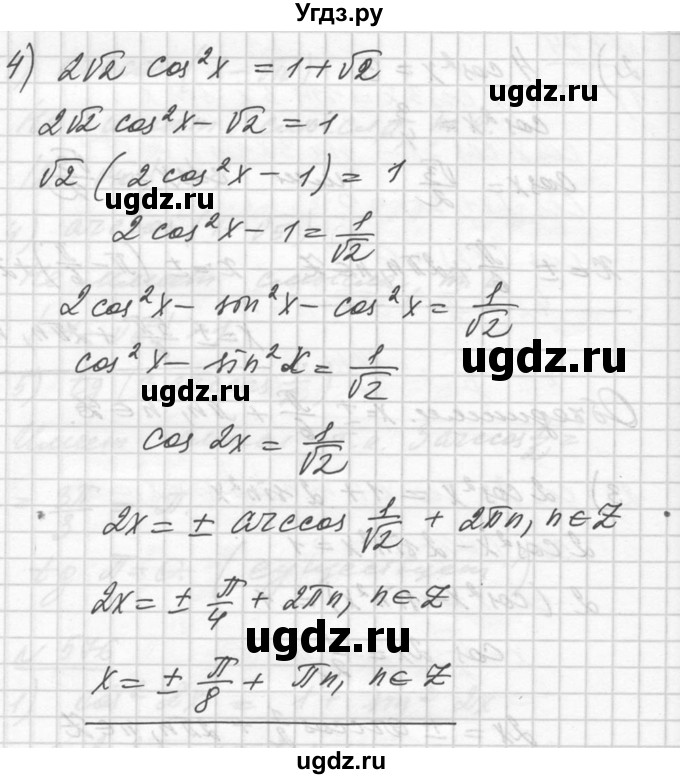 Угдз.ру
4) 2√2 cos²x = 1+√2
ugdz.ru
2√2 cos²x − √2 = 1
√2 (2cos²x − 1) = 1
ugdz.ru
2cos²x − 1 = 1/√2
2cos²x − sin²x − cos²x = 1/√2
ugdz.ru
cos²x − sin²x = 1/√2
ugdz.ru
cos 2x = 1/√2
2x = ± arccos 1/√2 + 2πn, n∈Z
2x = ± π/4 + 2πn, n∈Z
ugdz.ru
x = ± π/8 + πn, n∈Z
Угдз.ру